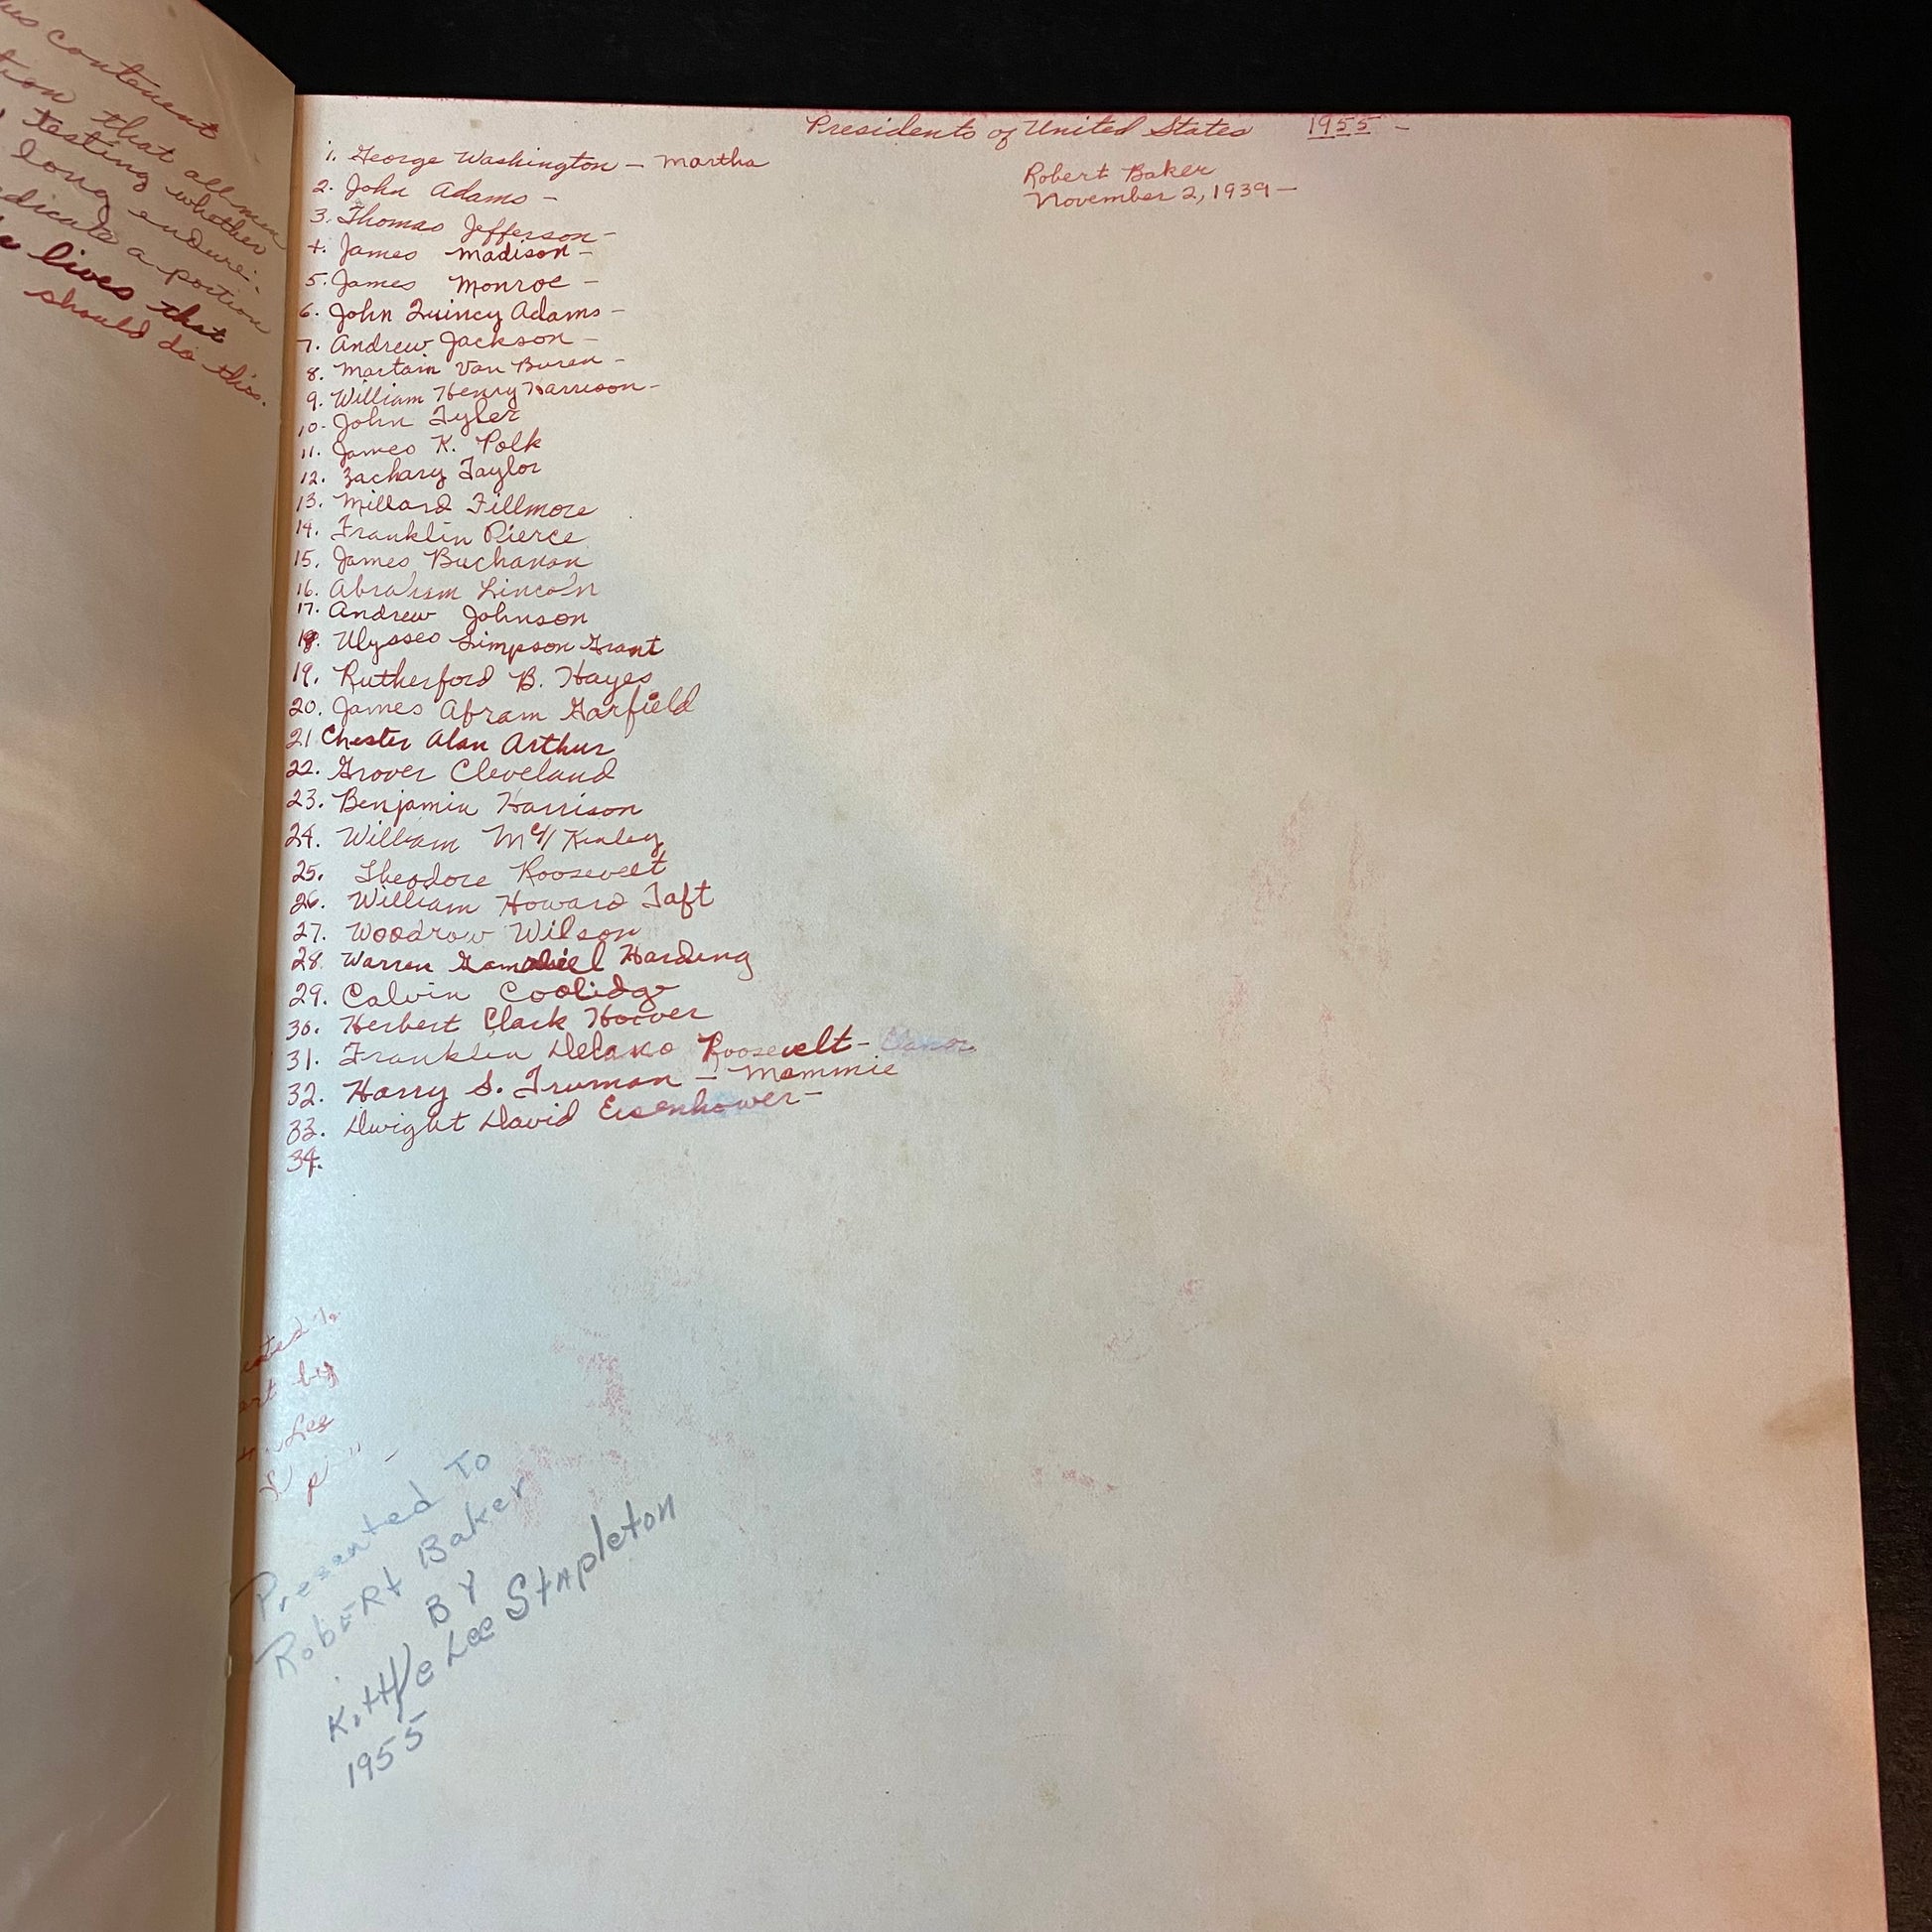 us contenent
tion that all men
testing whether
long endure:
dicate a portion
lives that
should do this.
Presidents of United States 1955 -
Robert Baker
November 2, 1939 -
1. George Washington - Martha
2. John Adams -
3. Thomas Jefferson -
4. James Madison -
5. James Monroe -
6. John Quincy Adams -
7. Andrew Jackson -
8. Martain Van Buren -
9. William Henry Harrison -
10. John Tyler
11. James K. Polk
12. Zachary Taylor
13. Millard Fillmore
14. Franklin Pierce
15. James Buchanan
16. Abraham Lincoln
17. Andrew Johnson
18. Ulysses Simpson Grant
19. Rutherford B. Hayes
20. James Abram Garfield
21 Chester Alan Arthur
22. Grover Cleveland
23. Benjamin Harrison
24. William Mc Kinley
25. Theodore Roosevelt
26. William Howard Taft
27. Woodrow Wilson
28. Warren Gamaliel Harding
29. Calvin Coolidge
30. Herbert Clark Hoover
31. Franklin Delano Roosevelt -
32. Harry S. Truman - Mammie
33. Dwight David Eisenhower -
34.
by
Lee
Presented To
Robert Baker
BY
Kittye Lee Stapleton
1955